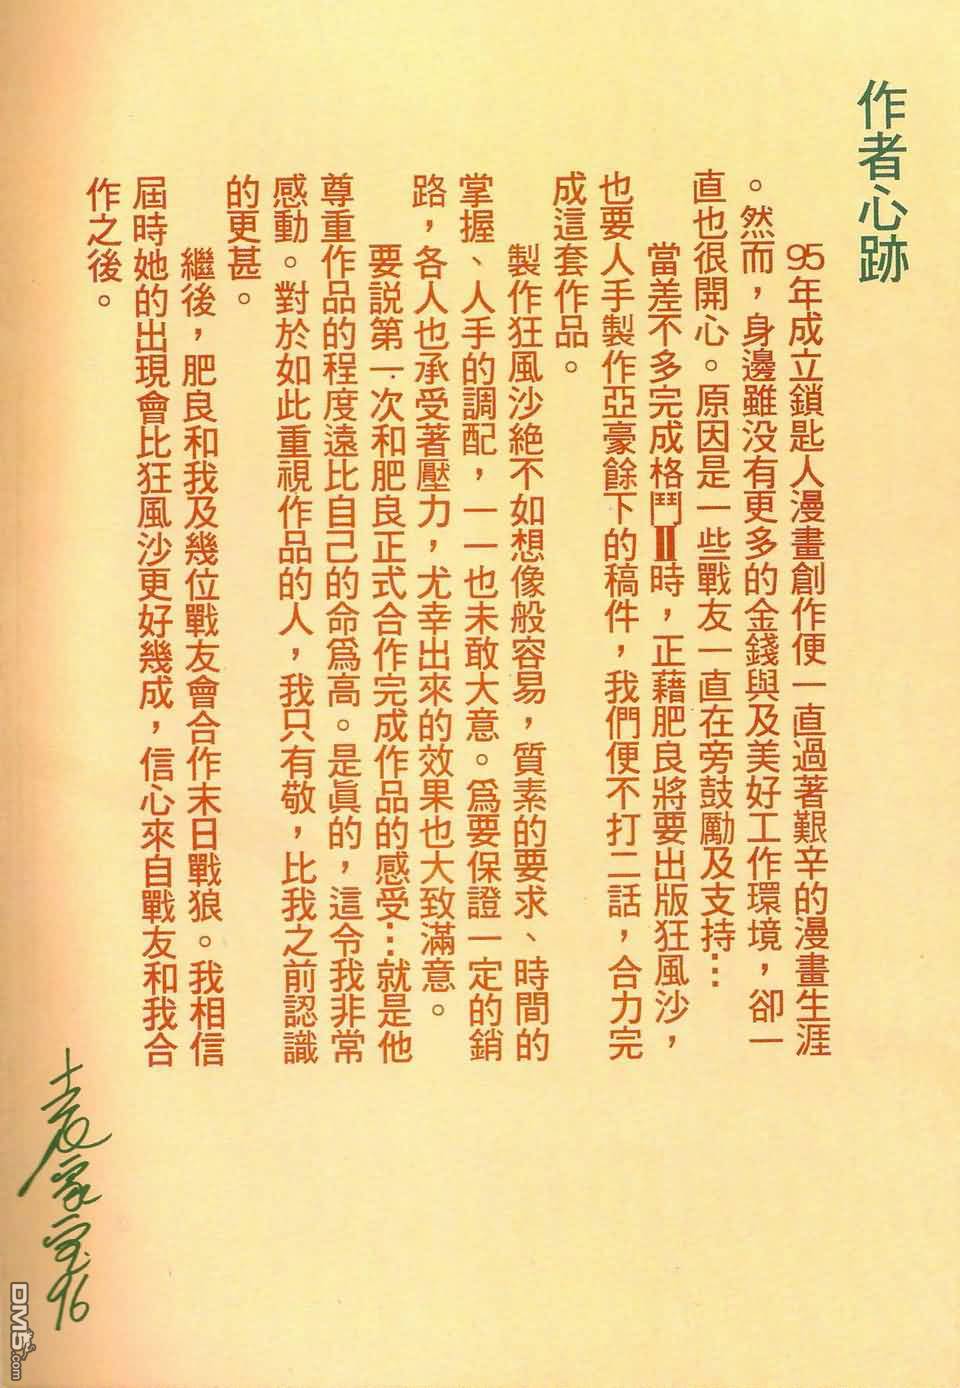 作者心跡
95年成立鎖匙人漫畫創作便一直過著艱辛的漫畫生涯
。然而，身邊雖没有更多的金錢與及美好工作環境，卻一
直也很開心。原因是一些戰友一直在旁鼓勵及支持…
當差不多完成格鬥Ⅱ時，正藉肥良將要出版狂風沙，
也要人手製作亞豪餘下的稿件，我們便不打二話，合力完
成這套作品。
製作狂風沙絕不如想像般容易，質素的要求、時間的
掌握、人手的調配，一一也未敢大意。爲要保證一定的銷
路，各人也承受著壓力，尤幸出來的效果也大致滿意。
要説第一次和肥良正式合作完成作品的感受…就是他
尊重作品的程度遠比自己的命爲高。是眞的，這令我非常
感動。對於如此重視作品的人，我只有敬，比我之前認識
的更甚。
繼後，肥良和我及幾位戰友會合作末日戰狼。我相信
屆時她的出現會比狂風沙更好幾成，信心來自戰友和我合
作之後。
袁家宝
96
DM5.com